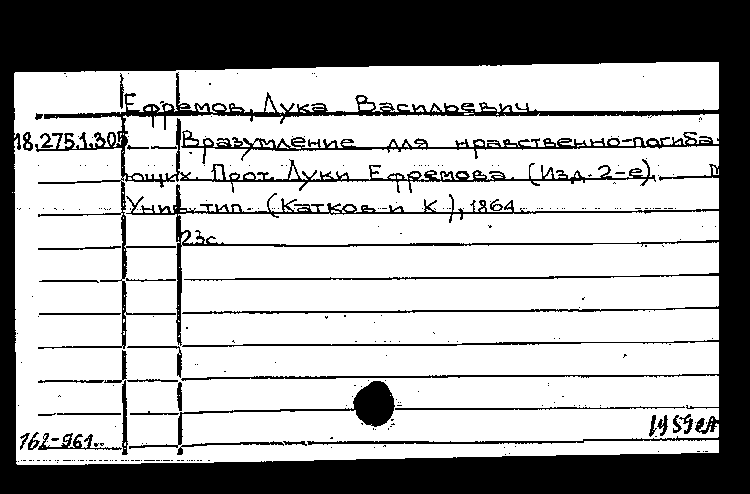 Ефремов, Лука Васильевич.
18.275.1.305 Вразумление для нравственно-погиба-
ющих. Прот. Луки Ефремова. (Изд. 2-е). М
Унив. тип. (Катков и К), 1864.
23с.
162-961.